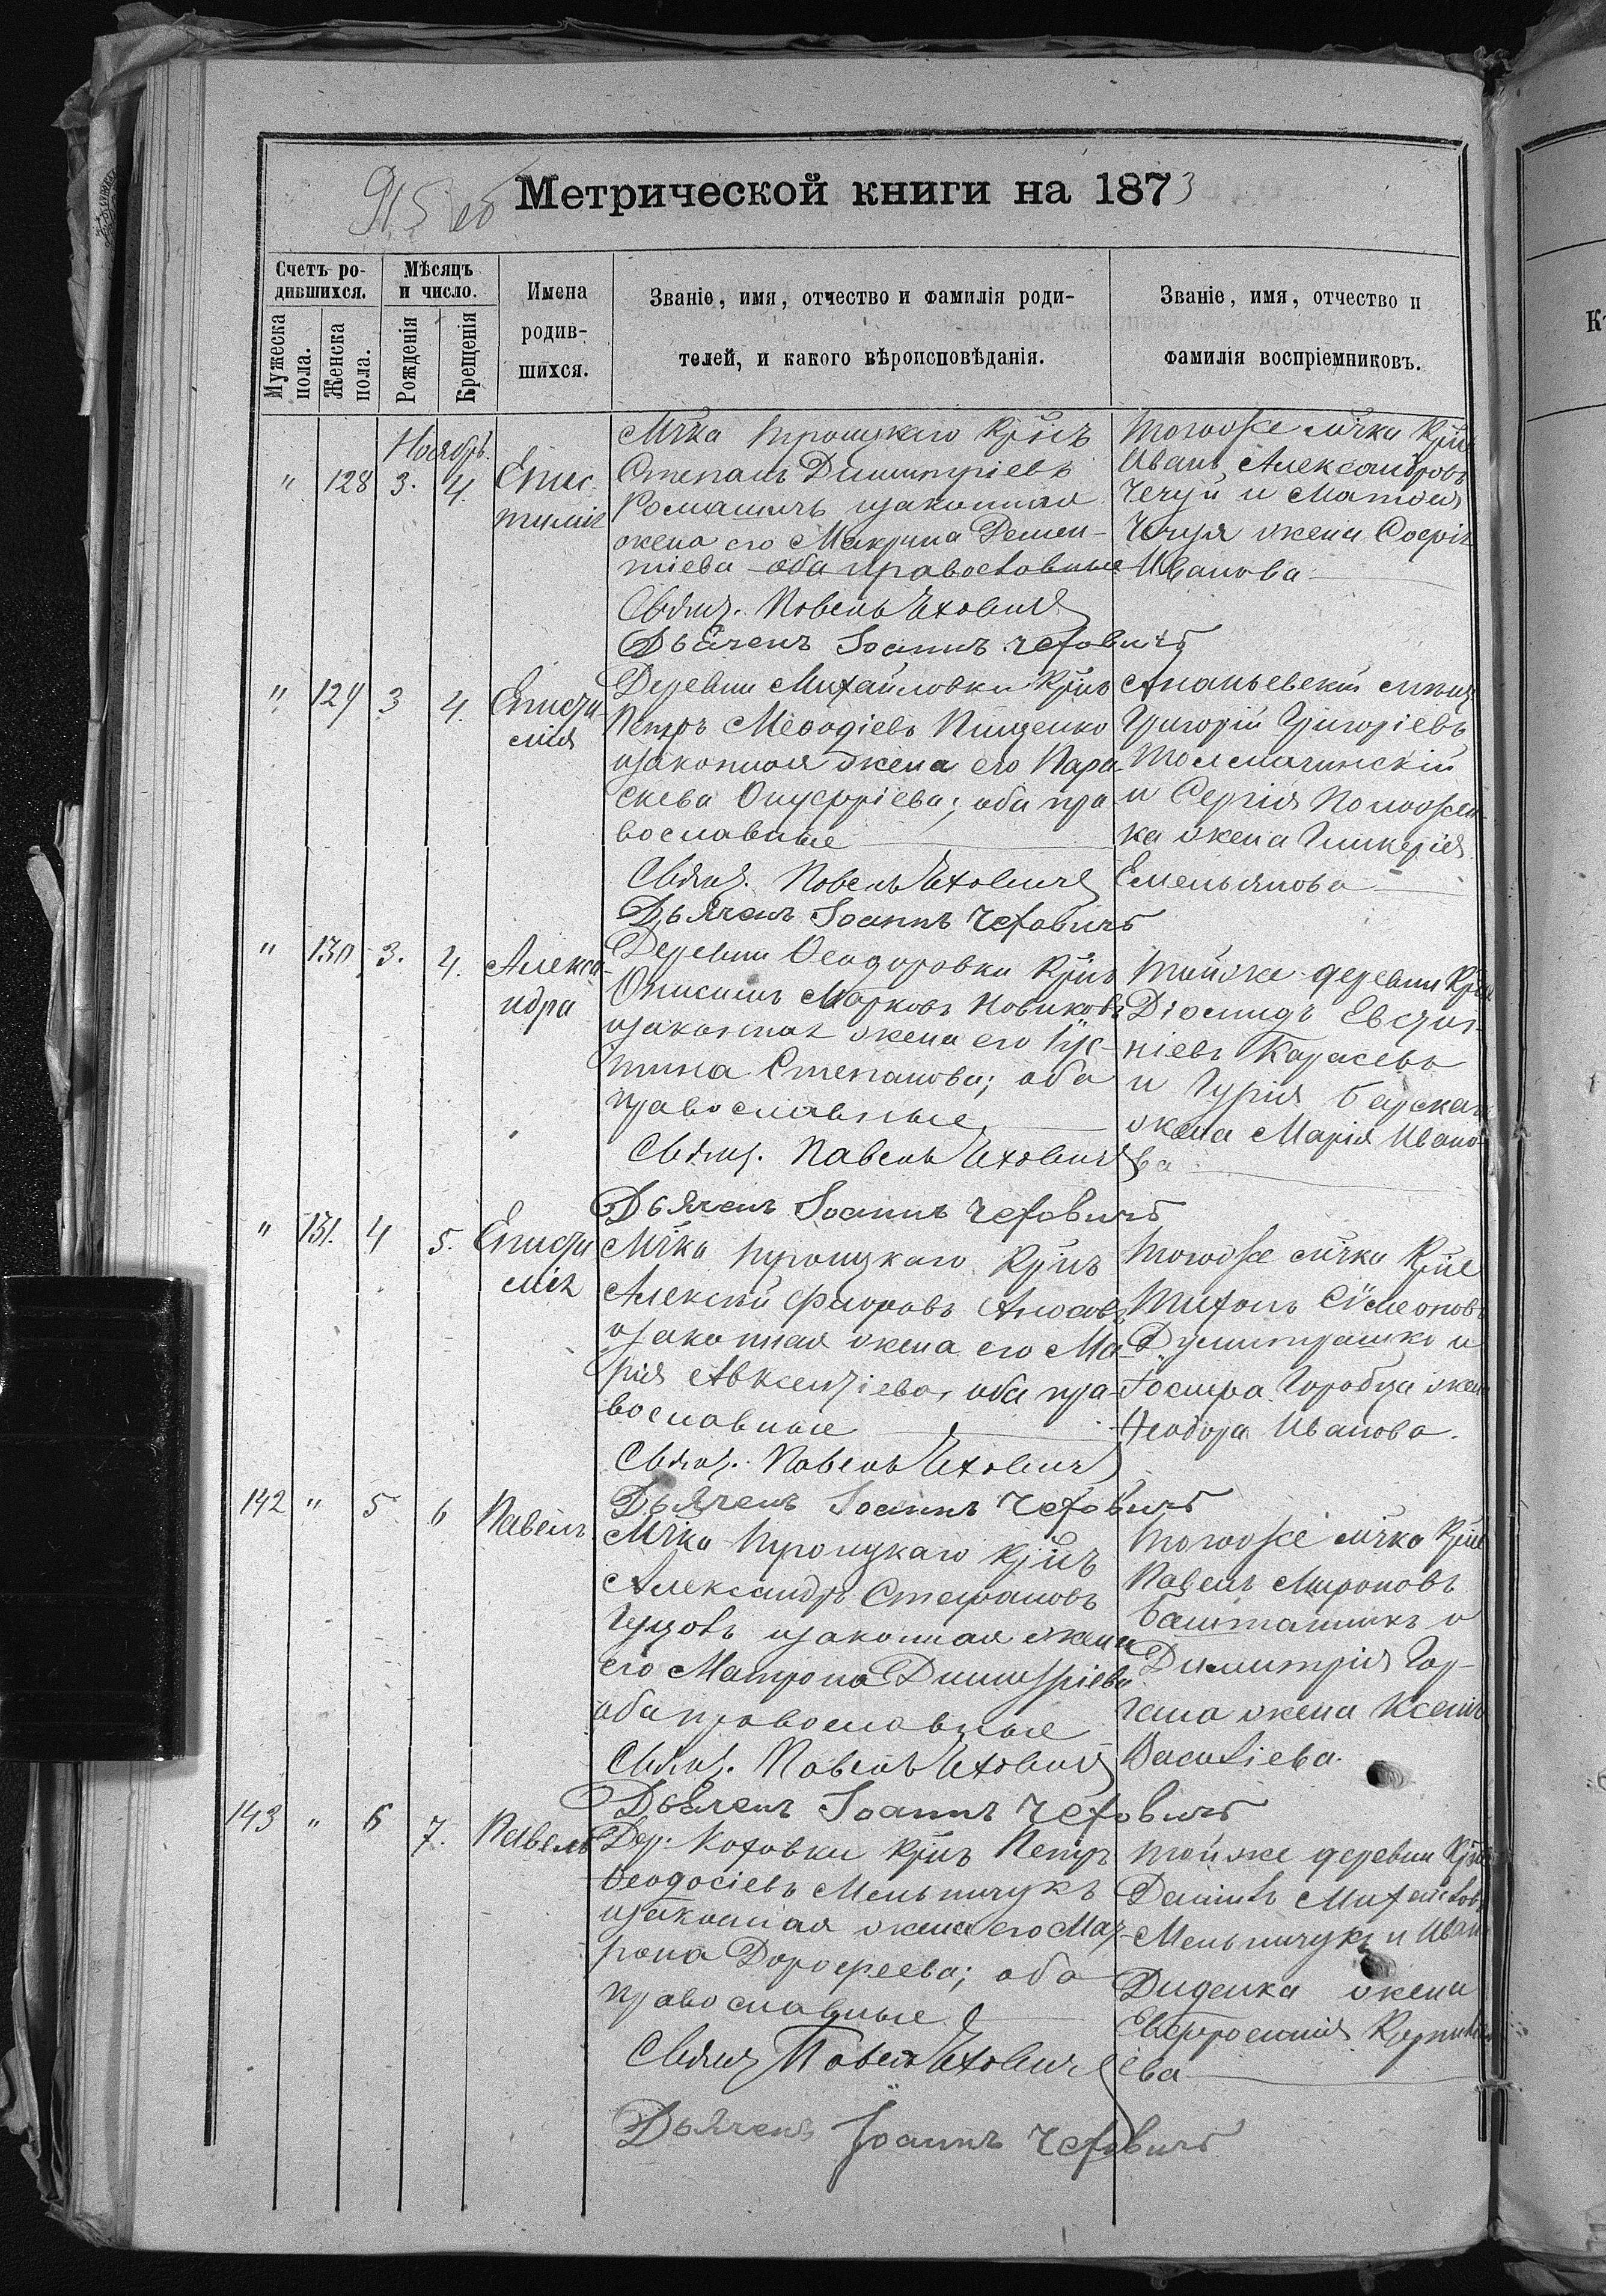 915 об
Метрической книги на 1873
Счетъ ро-
дившихся.
Мужеска
пола.
Женска
пола.
Мѣсяцъ
и число.
Рожденія
Крещенія
Имена
родив-
шихся.
Званіе, имя, отчество и фамилія роди-
телей, и какого вѣроисповѣданія.
Званіе, имя, отчество и
фамилія воспріемниковъ.
Ноябрь.
" 128 3. 4.
Епис-
тимія
Мѣчка Троицкаго Крѣнъ
Степанъ Димитріевъ
законная
жена его Макрина Демен-
тіева оба православные
Свящ. Павелъ Чеховичъ
Дьячекъ Іоаннъ Чеховичъ
Тогоже мѣчка Крѣне
Иванъ Александровъ
Чечуй и Матвея
Чечуя жена Софія
Иванова
" 129 3 4.
Еписти
мія
Деревни Михайловки Крѣнъ
Петръ Меѳодіевъ Пищенко
законная жена его Пара-
скева Онуфріева; оба пра
вославные
Свящ. Павелъ Чеховичъ
Дьячекъ Іоаннъ Чеховичъ
Ананьевскій
Григорій Григоріевъ
Толмачинскій
и Сергія
ка жена Гликерія
Емельянова
" 130 3. 4.
Алекса-
ндра
Деревни Ѳеодоровки Крѣнъ
Онисимъ Марковъ Новиковъ
законная жена его Іус-
тина Степанова; оба
православные
Свящ. Павелъ Чеховичъ
Дьячекъ Іоаннъ Чеховичъ
Тойже деревни Крѣне
Діомидъ Евстиг-
ніевъ Карасевъ
и Гурія
жена Марія Ивано
ва
" 131. 4 5.
Еписти
мія
Мѣчка Троицкаго Крѣнъ
Алексѣй Флоровъ
законная жена его Ма-
рія Авксентіева, оба пра-
вославные
Свящ. Павелъ Чеховичъ
Дьячекъ Іоаннъ Чеховичъ
Тогоже мѣчка Крѣне
Тихонъ Сѵмеоновъ
Думитрашко и
Іосифа Горобца жена
Ѳеодора Иванова.
142 " 5 6
Павелъ
Мѣчка Троицкаго Крѣнъ
Александръ Стефановъ
законная жена
его Матрона Димитріева
оба православные
Свящ. Павелъ Чеховичъ
Дьячекъ Іоаннъ Чеховичъ
Тогоже мѣчка Крѣне
Павелъ Мироновъ
Баштанникъ и
Димитрія
жена Ксенія
Василіева.
143 " 6 7.
Павелъ
Дер. Котовки Крѣнъ Петръ
Ѳеодосіевъ Мельничукъ
законная жена его Мат-
рона Дорофеева; оба
православные
Свящ Павелъ Чеховичъ
Дьячекъ Іоаннъ Чеховичъ
Тойже деревни Крѣне
Даніилъ Михайловъ
Мельничукъ и Ивана
Диденка жена
Евфросинія Корнил
ева